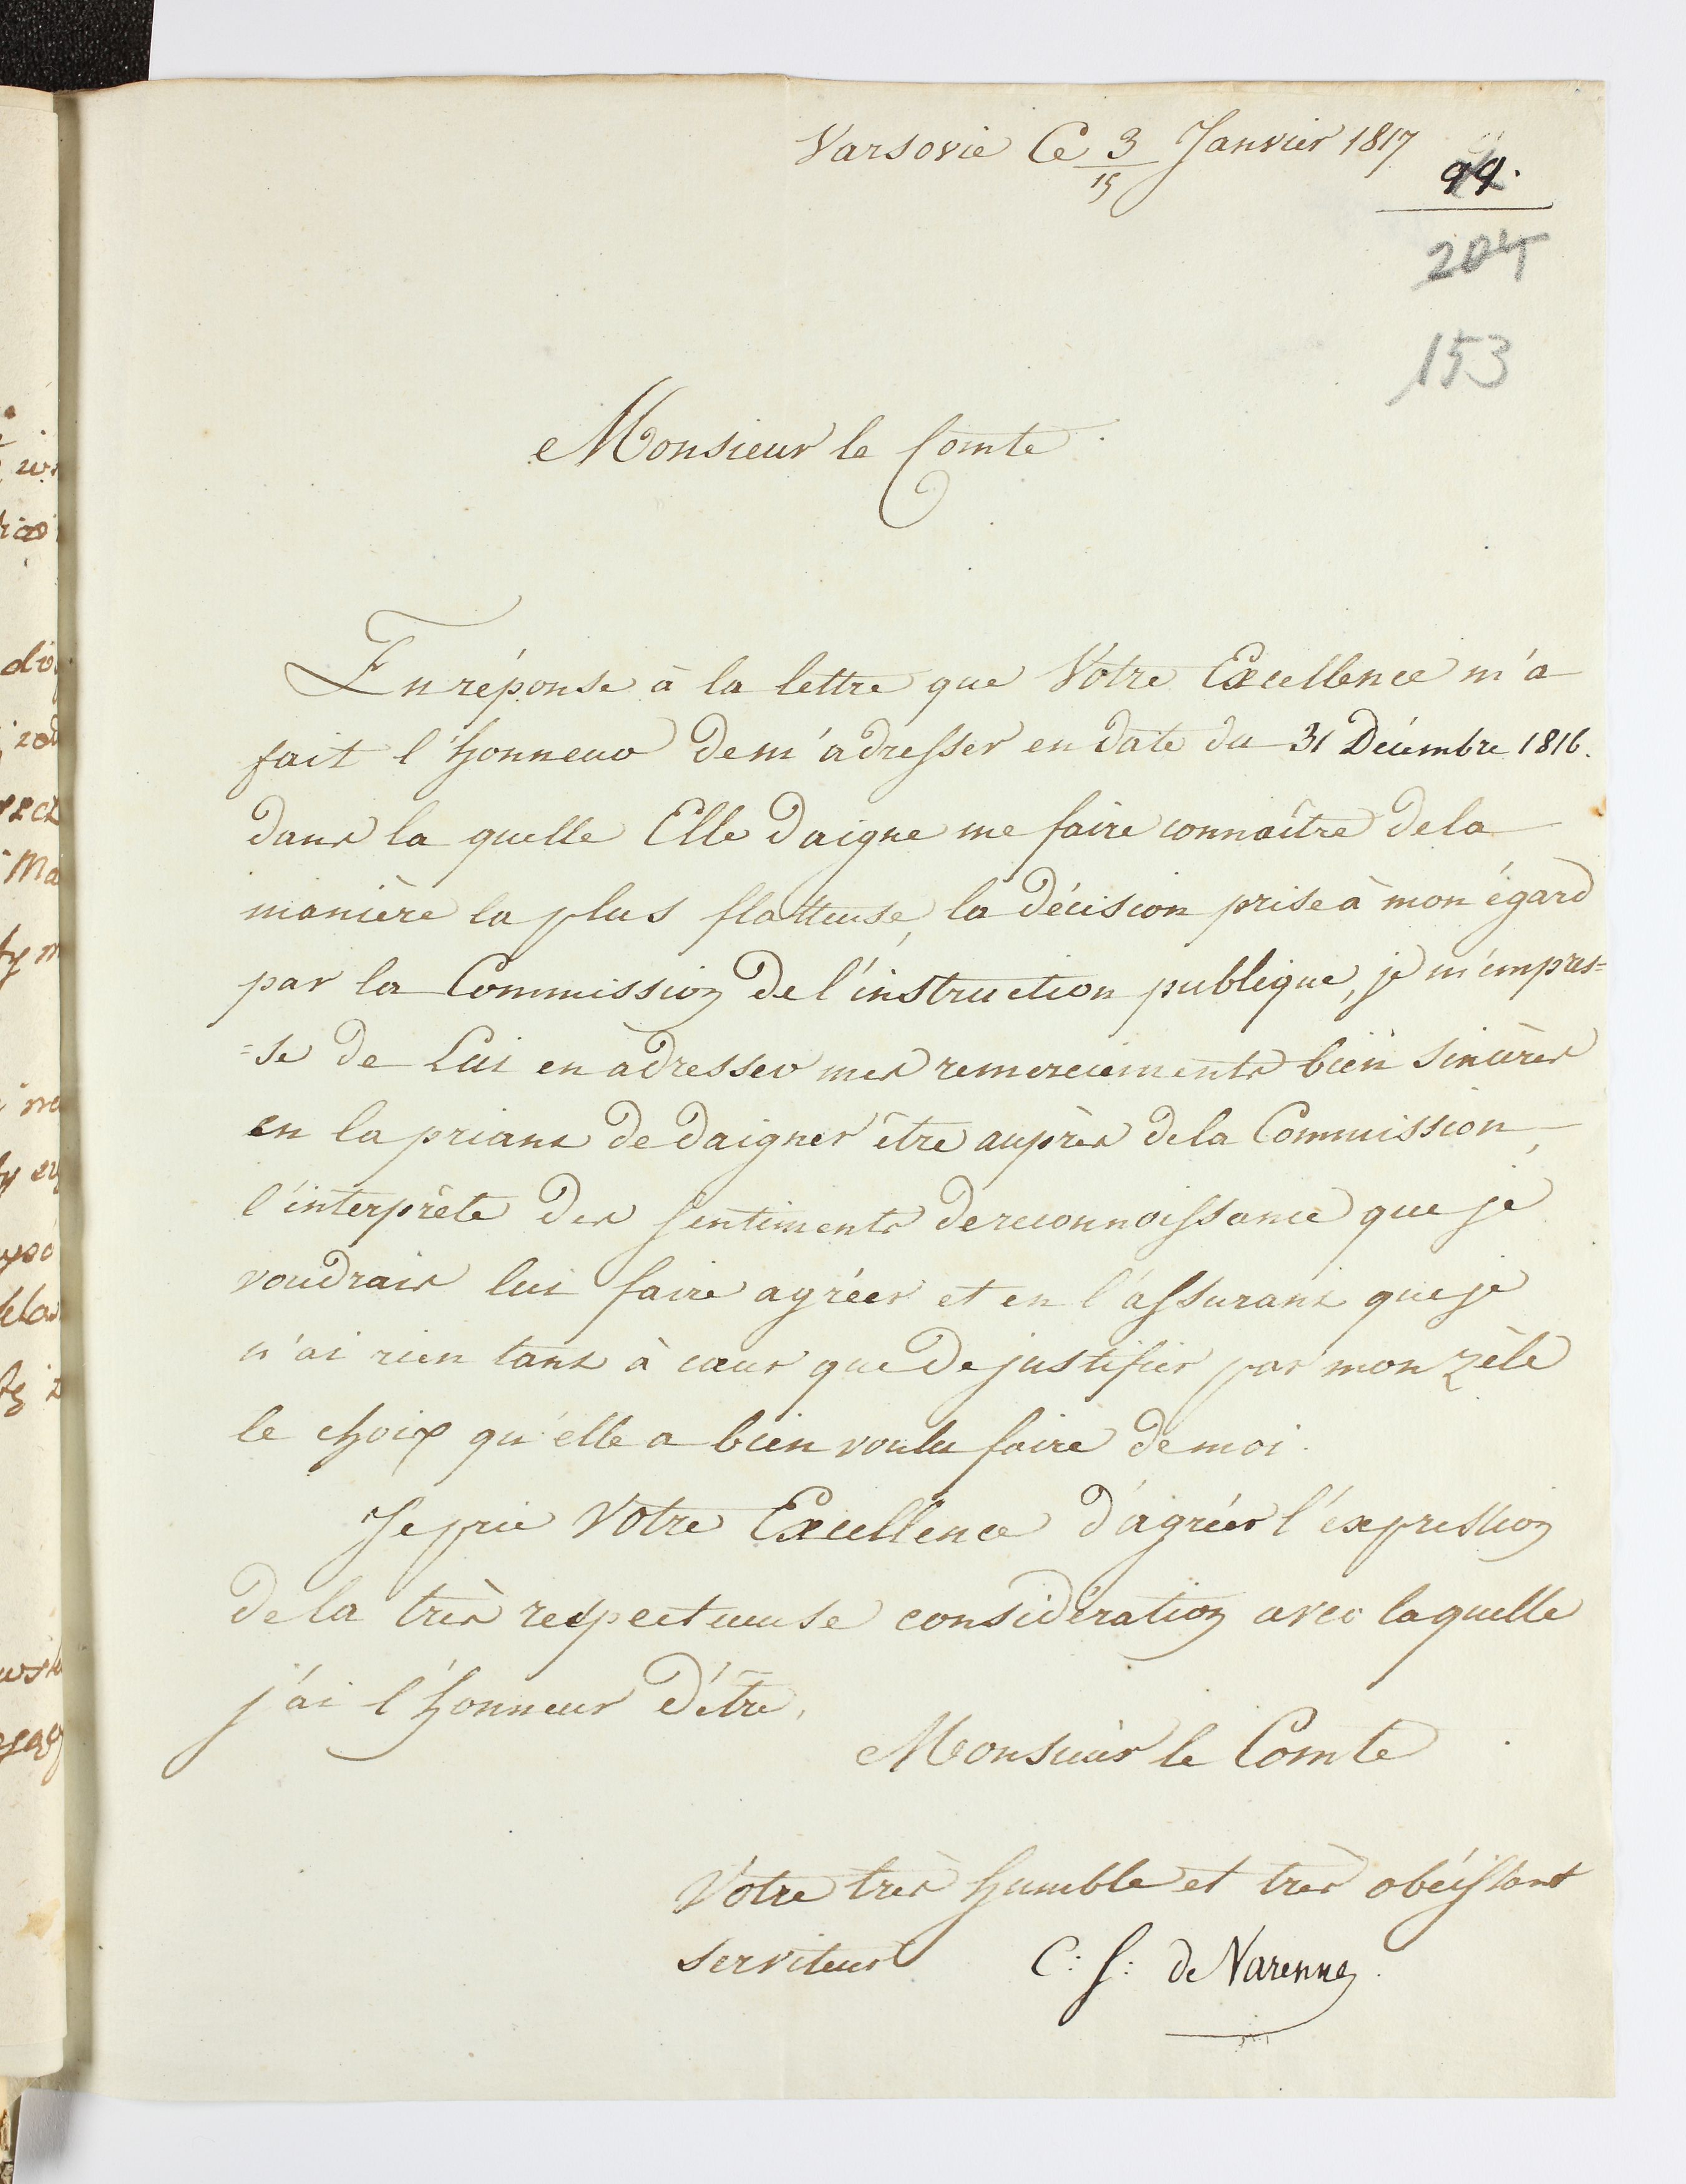 Varsovie Ce 3/15 Janvier 1817
99.
204
153
Monsieur le Comte
En réponse à la lettre que Votre Excellence m'a
fait l'honneur de m'adresser en date du 31 Décembre 1816.
dans la quelle Elle daigne me faire connaître de la
manière la plus flatteuse, la décision prise à mon égard
par la Commission de l'instruction publique, je m'empres=
=se de Lui en adresser mes remerciements bien sincères
en la priant de daigner être auprès de la Commission,
l'interprète des sentiments de reconnoissance que je
voudrais lui faire agréer et en l'assurant que je
n'ai rien tant à cœur que de justifier par mon zèle
le choix qu'elle a bien voulu faire de moi.
Je prie Votre Excellence d'agréer l'expression
de la très respectueuse considération avec laquelle
j'ai l'honneur d'être,
Monsieur le Comte
Votre très humble et très obéissant
serviteur C: S: de Varennes.